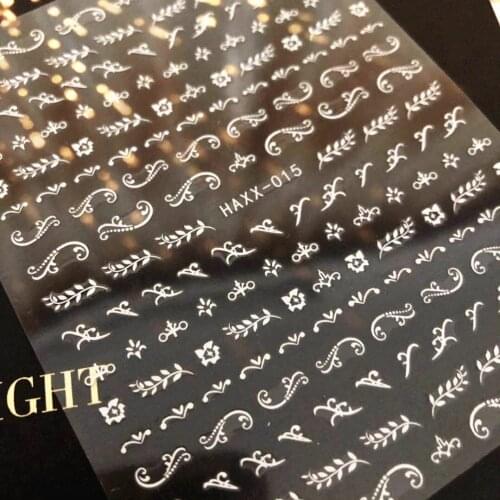 HAXX-015
IGHT